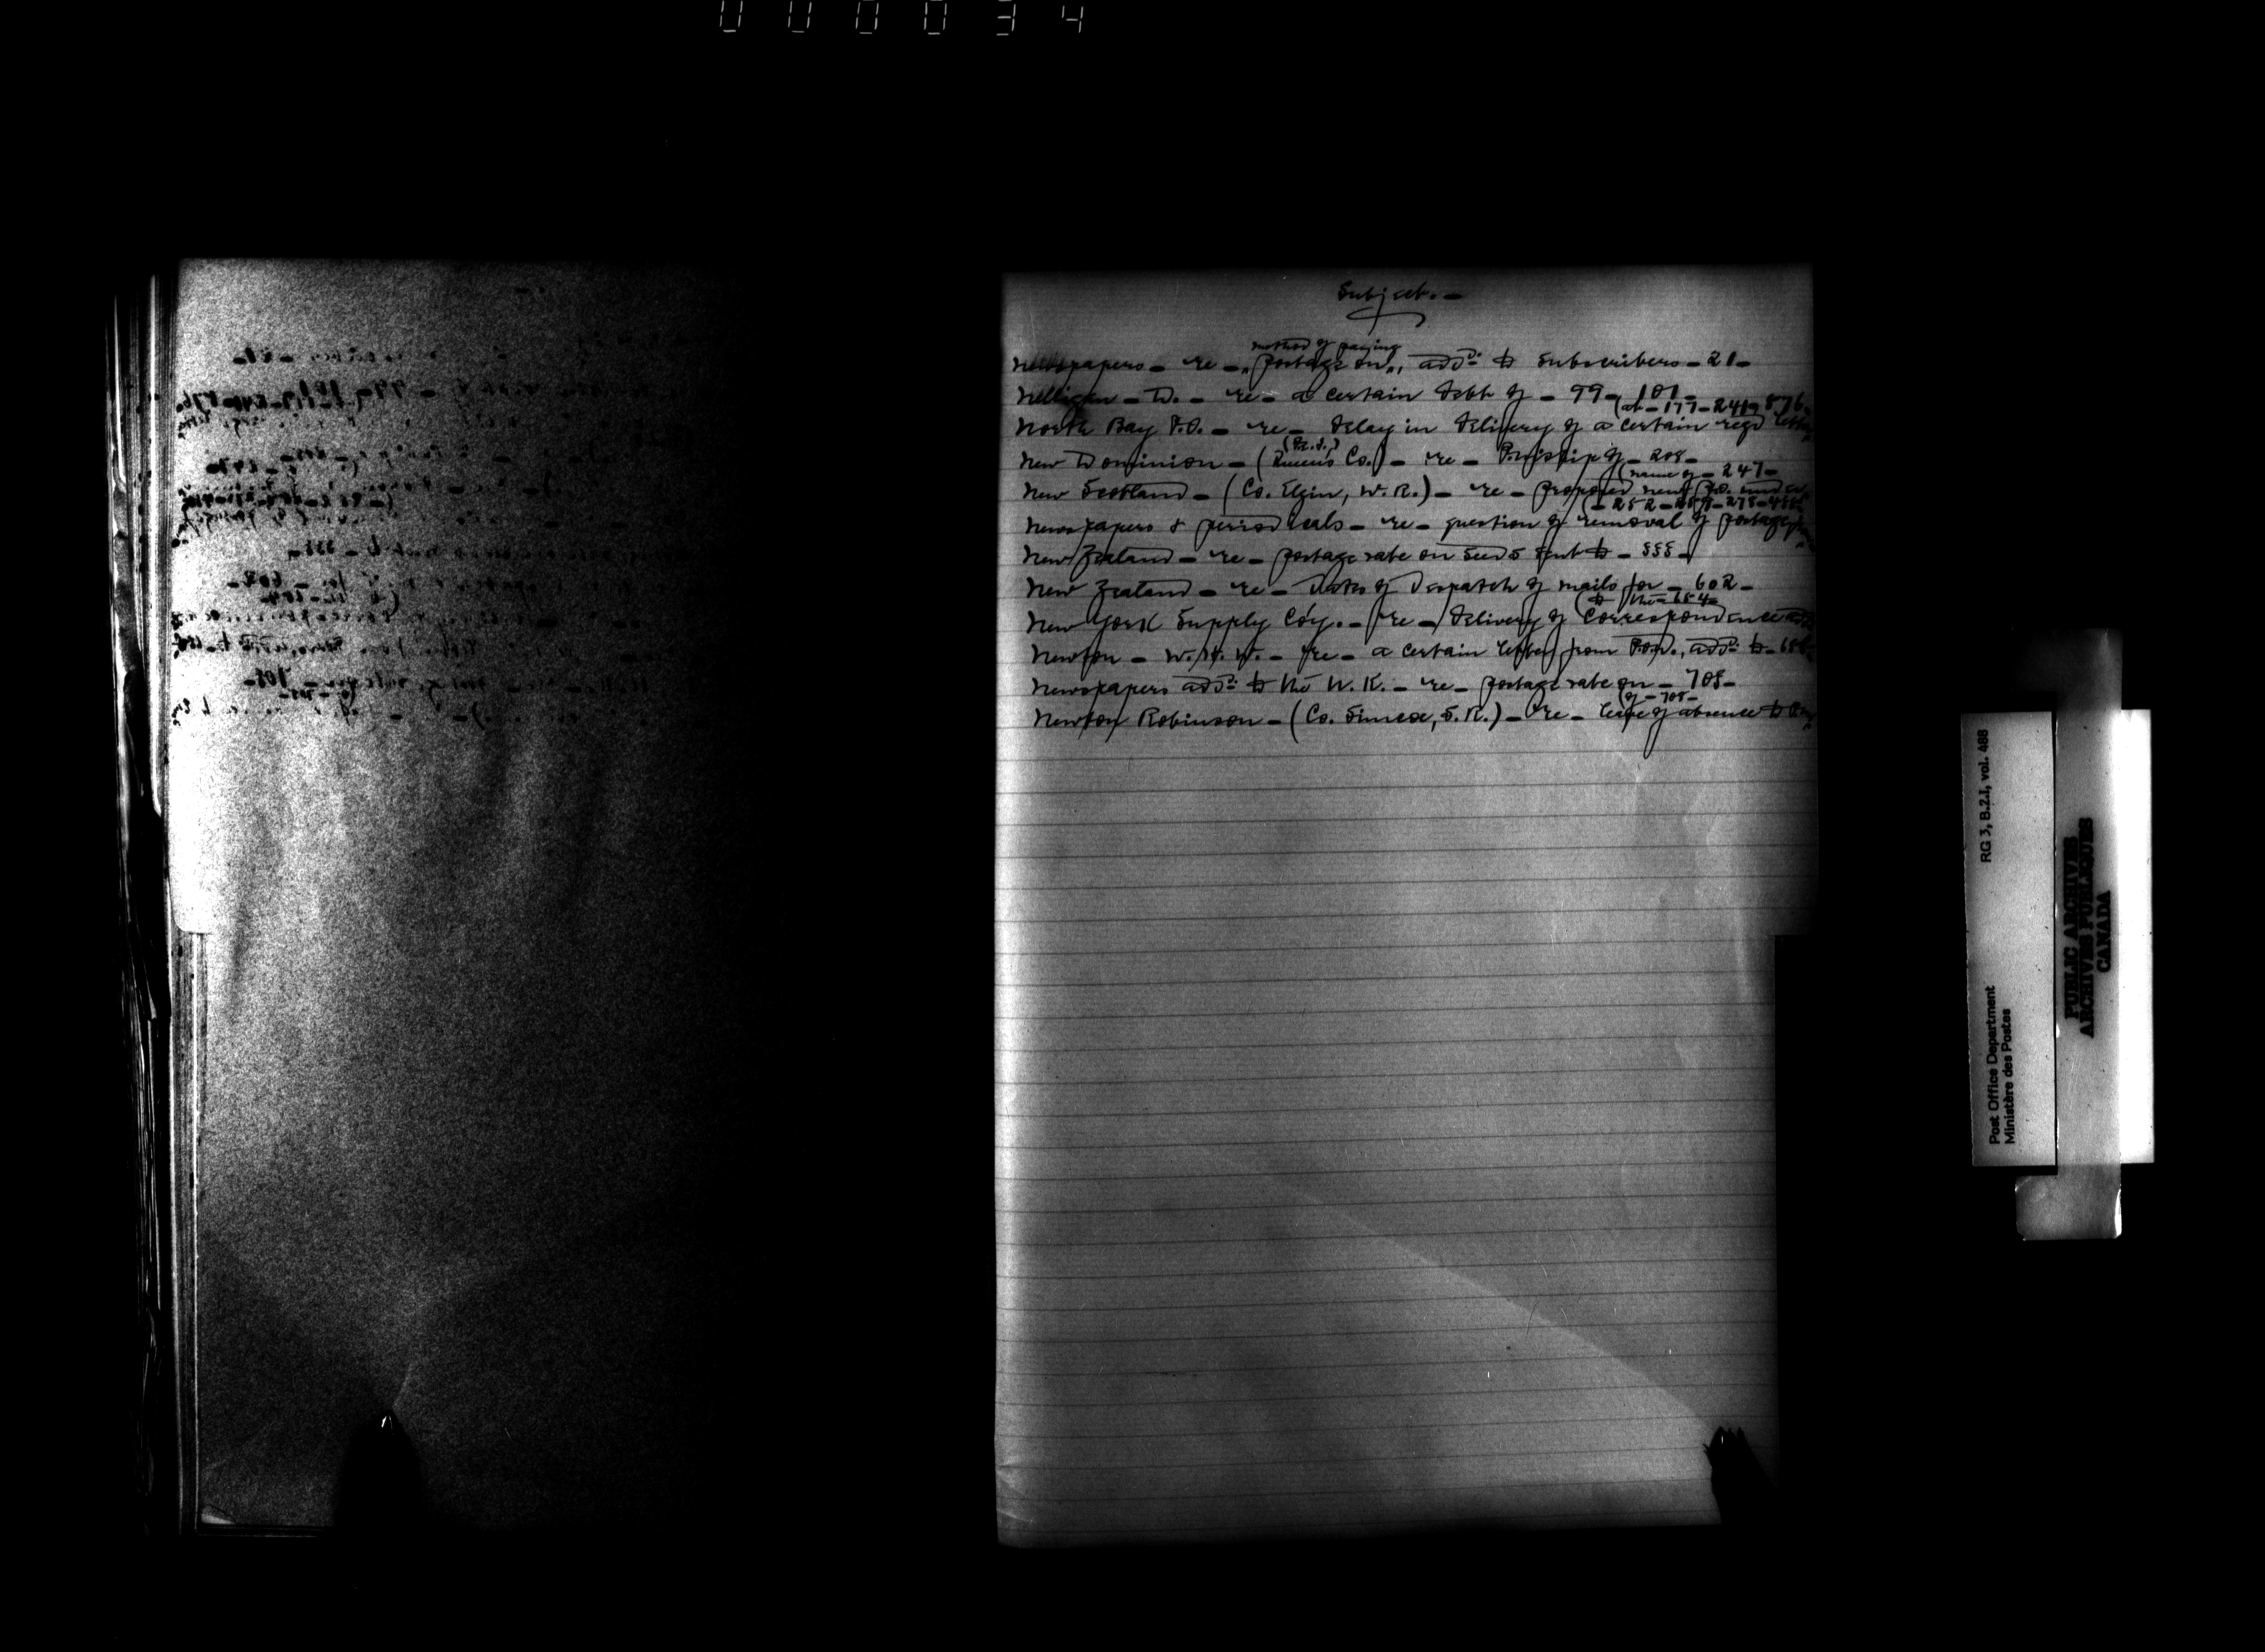 000034
Subject. —
method of paying
Newspapers — re — "postage on", add'd to Subscribers — 21 —
Nelligan — D. — re — a certain debt of — 99 — 101 —
(at — 177 — 241 — 576 —
North Bay P.O. — re — delay in delivery of a certain reg'd letter
(P.E.I.)
New Dominion — (Queens Co.) — re — P.M'ship of — 208 —
(name of — 247 —
New Scotland — (Co. Elgin, W.R.) — re — proposed new P.O. and
Newspapers & periodicals — re — question of removal of postage
New Zealand — re — postage rate on seeds sent to — 555 —
New Zealand — re — dates of despatch of mails for — 602 —
(to the — 654 —
New York Supply Co'y. — re — delivery of correspondence add'd
Newton — W. H. W. — re — a certain letter from P.O.D., add'd to —
Newspapers add'd to the U.K. — re — postage rate on — 705 —
of — 705 —
Newton Robinson — (Co. Simcoe, S.R.) — re — leave of absence to
RG 3, B.2.I, vol. 488
Post Office Department
Ministère des Postes
PUBLIC ARCHIVES
ARCHIVES PUBLIQUES
CANADA